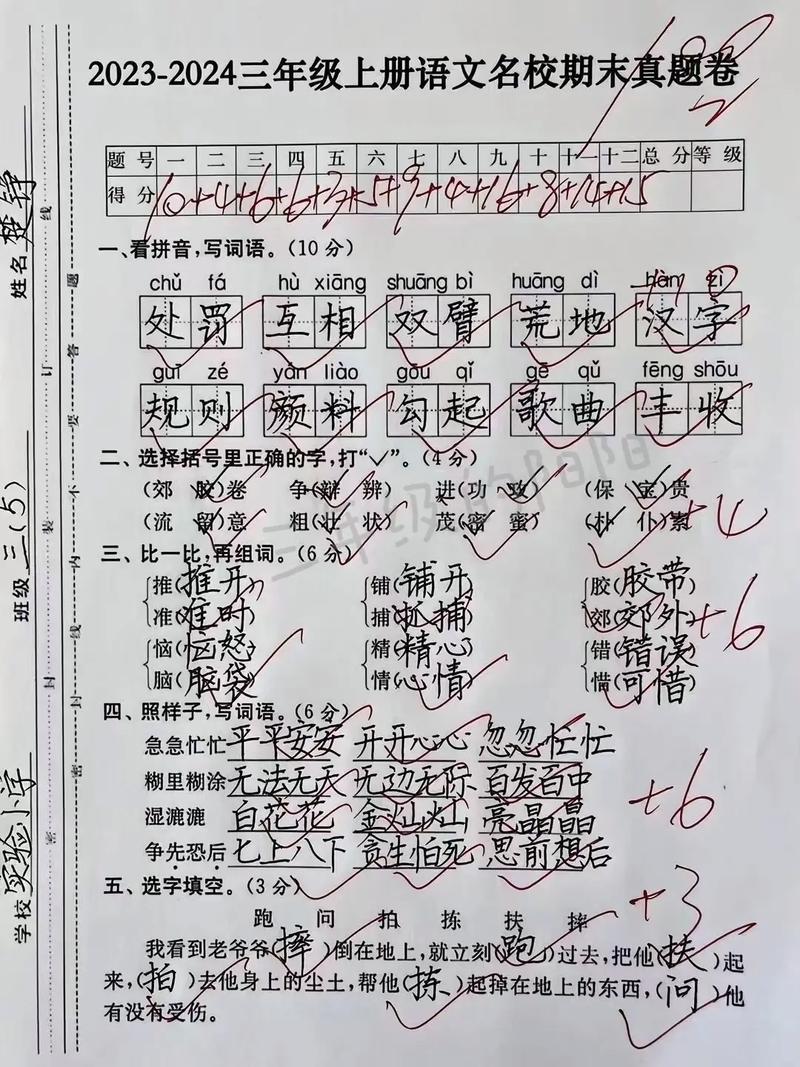 2023-2024三年级上册语文名校期末真题卷
100
题号 一 二 三 四 五 六 七 八 九 十 十一 十二 总分 等级
得分 10+4+6+6+3+5+9+4+16+8+14+15
一、看拼音，写词语。（10分）
chǔ fá hù xiāng shuāng bì huāng dì hàn zì
处罚 互相 双臂 荒地 汉字
guī zé yán liào gōu qǐ gē qǔ fēng shōu
规则 颜料 勾起 歌曲 丰收
二、选择括号里正确的字，打“✓”。（4分）
（郊 胶）卷 争（辩 辨） 进（功 攻） （保 宝）贵
（流 留）意 粗（壮 状） 茂（密 蜜） （朴 仆）素 +4
三、比一比，再组词。（6分）
推（推开） 铺（铺开） 胶（胶带）
准（准时） 捕（抓捕） 郊（郊外） +6
恼（恼怒） 精（精心） 错（错误）
脑（脑袋） 情（心情） 惜（可惜）
四、照样子，写词语。（6分）
急急忙忙 平平安安 开开心心 忽忽忙忙
糊里糊涂 无法无天 无边无际 百发百中
湿漉漉 白花花 金灿灿 亮晶晶 +6
争先恐后 七上八下 贪生怕死 思前想后
五、选字填空。（3分） +3
跑 问 拍 拣 扶 摔
我看到老爷爷（摔）倒在地上，就立刻（跑）过去，把他（扶）起
来，（拍）去他身上的尘土，帮他（拣）起掉在地上的东西，（问）他
有没有受伤。
学校 实验小学 班级 三（5） 姓名 楚铮
密 封 线 内 不 要 答 题
密 封 装 订 线
三年级的阳阳